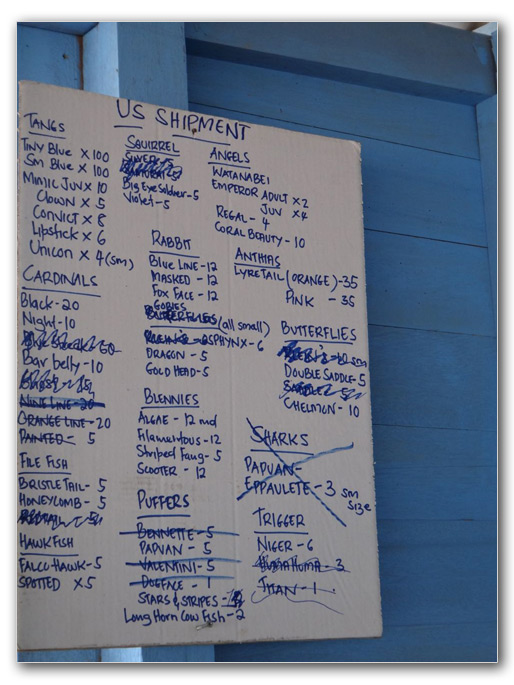 US SHIPMENT
TANGS
TINY BLUE X 100
SM BLUE X 100
MIMIC JUV X 10
CLOWN X 5
CONVICT X 8
LIPSTICK X 6
UNICORN X 4 (SM)
CARDINALS
Black - 20
Night - 10
Bar belly - 10
NINE LINE - 20
ORANGE LINE - 20
PAINTED - 5
FILE FISH
BRISTLE TAIL - 5
HONEYCOMB - 5
HAWKFISH
FALCO HAWK - 5
SPOTTED X 5
SQUIRREL
Big Eye Soldier - 5
Violet - 5
RABBIT
BLUE LINE - 12
MASKED - 12
FOX FACE - 12
GOBIES
(all small)
SPHYNX - 6
DRAGON - 5
GOLD HEAD - 5
BLENNIES
ALGAE - 12 md
Filamentous - 12
Striped Fang - 5
SCOOTER - 12
PUFFERS
BENNETTE - 5
PAPUAN - 5
VALENTINI - 5
DOGFACE - 1
STARS & STRIPES -
Long Horn Cow Fish - 2
ANGELS
WATANABEI
EMPEROR ADULT X 2
JUV X 4
REGAL - 4
CORAL BEAUTY - 10
ANTHIAS
LYRETAIL (ORANGE) - 35
PINK - 35
BUTTERFLIES
DOUBLE SADDLE - 5
SADDLE
CHELMON - 10
SHARKS
PAPUAN -
EPPAULETE - 3 SM
SIZE
TRIGGER
NIGER - 6
HUMA HUMA - 3
TITAN - 1